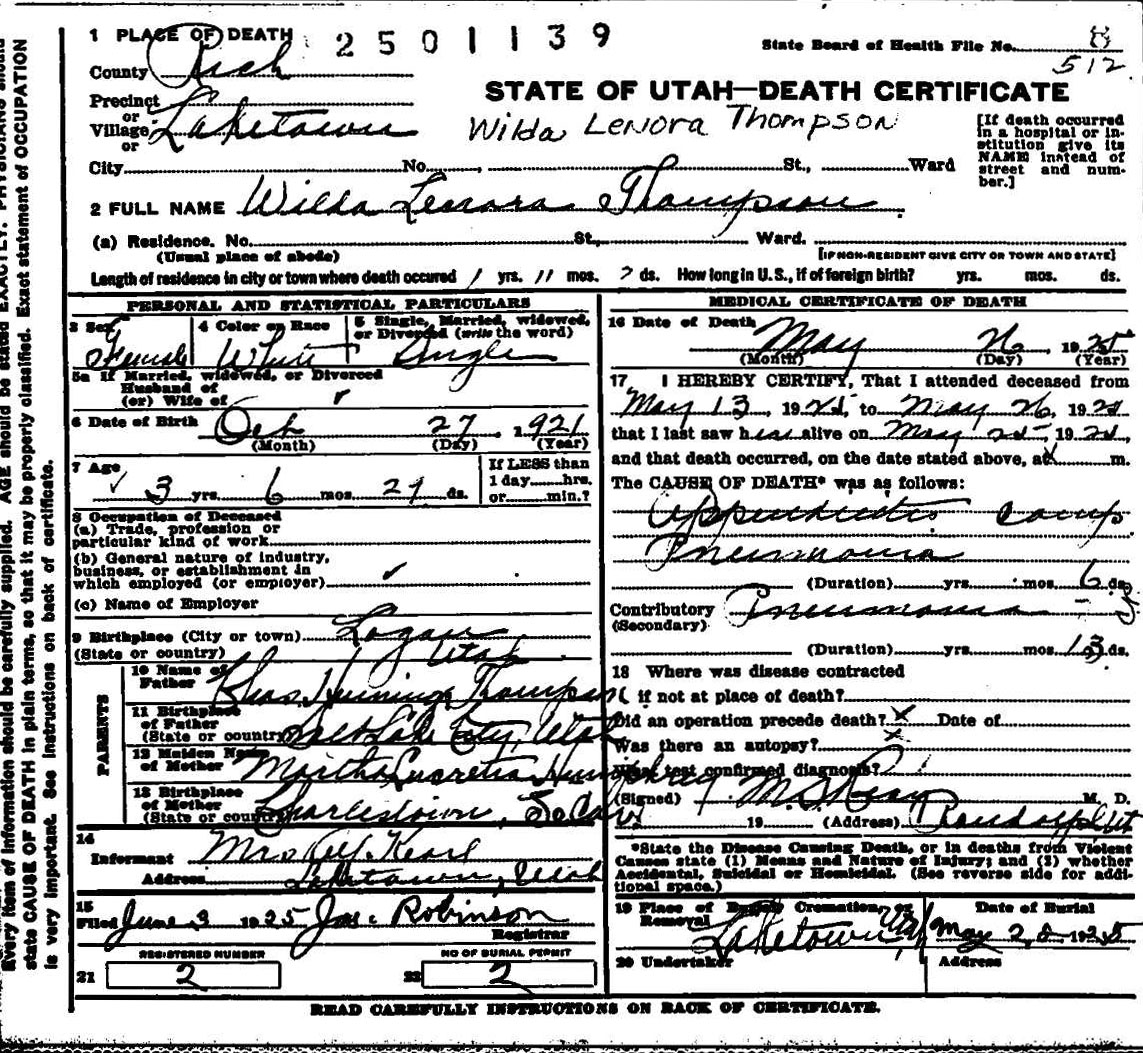 1 PLACE OF DEATH
2501139
State Board of Health File No. 8
512
County Rich
STATE OF UTAH—DEATH CERTIFICATE
Precinct
or
Village Laketown
or
Wilda Lenora Thompson
[If death occurred in a hospital or institution give its NAME instead of street and number.]
City No. St., Ward
2 FULL NAME Wilda Lenora Thompson
(a) Residence. No. St., Ward.
(Usual place of abode) [IF NON-RESIDENT GIVE CITY OR TOWN AND STATE]
Length of residence in city or town where death occured 1 yrs. 11 mos. ds. How long in U. S., if of foreign birth? yrs. mos. ds.
PERSONAL AND STATISTICAL PARTICULARS
3 Sex Female
4 Color or Race White
5 Single, Married, widowed, or Divorced (write the word) Single
5a If Married, widowed, or Divorced
Husband of
(or) Wife of
6 Date of Birth Oct 27 1921
(Month) (Day) (Year)
7 Age 3 yrs. 6 mos. 29 ds.
If LESS than
1 day hrs.
or min.?
8 Occupation of Deceased
(a) Trade, profession or
particular kind of work
(b) General nature of industry,
business, or establishment in
which employed (or employer)
(c) Name of Employer
9 Birthplace (City or town) Logan
(State or country) Utah
PARENTS
10 Name of Father Chas. Thompson
11 Birthplace of Father
(State or country) Salt Lake City, Utah
12 Maiden Name of Mother Martha Lucretia Humphrey
13 Birthplace of Mother
(State or country) Charlestown, So Car
14
Informant Mrs Kearl
Address Laketown, Utah
15
Filed June 3 1925 Jos. Robinson
Registrar
REGISTERED NUMBER
21 2
NO OF BURIAL PERMIT
22 2
MEDICAL CERTIFICATE OF DEATH
16 Date of Death May 26, 1925
(Month) (Day) (Year)
17 I HEREBY CERTIFY, That I attended deceased from
May 13, 1925, to May 26, 1925
that I last saw her alive on May 25, 1925,
and that death occurred, on the date stated above, at m.
The CAUSE OF DEATH* was as follows:
Appendicitis comp
Pneumonia
(Duration) yrs. mos. 6 ds.
Contributory Pneumonia
(Secondary)
(Duration) yrs. mos. 13 ds.
18 Where was disease contracted
if not at place of death?
Did an operation precede death? x Date of
Was there an autopsy? x
What test confirmed diagnosis?
(Signed) M. D.
19 (Address) Randolph Ut
*State the Disease Causing Death, or in deaths from Violent
Causes state (1) Means and Nature of Injury; and (2) whether
Accidental, Suicidal or Homicidal. (See reverse side for addi-
tional space.)
19 Place of Burial Cremation, or Removal Laketown Ut
Date of Burial May 28 1925
20 Undertaker Address
READ CAREFULLY INSTRUCTIONS ON BACK OF CERTIFICATE.
Every item of information should be carefully supplied. AGE should be stated EXACTLY. PHYSICIANS should
state CAUSE OF DEATH in plain terms, so that it may be properly classified. Exact statement of OCCUPATION
is very important. See instructions on back of certificate.